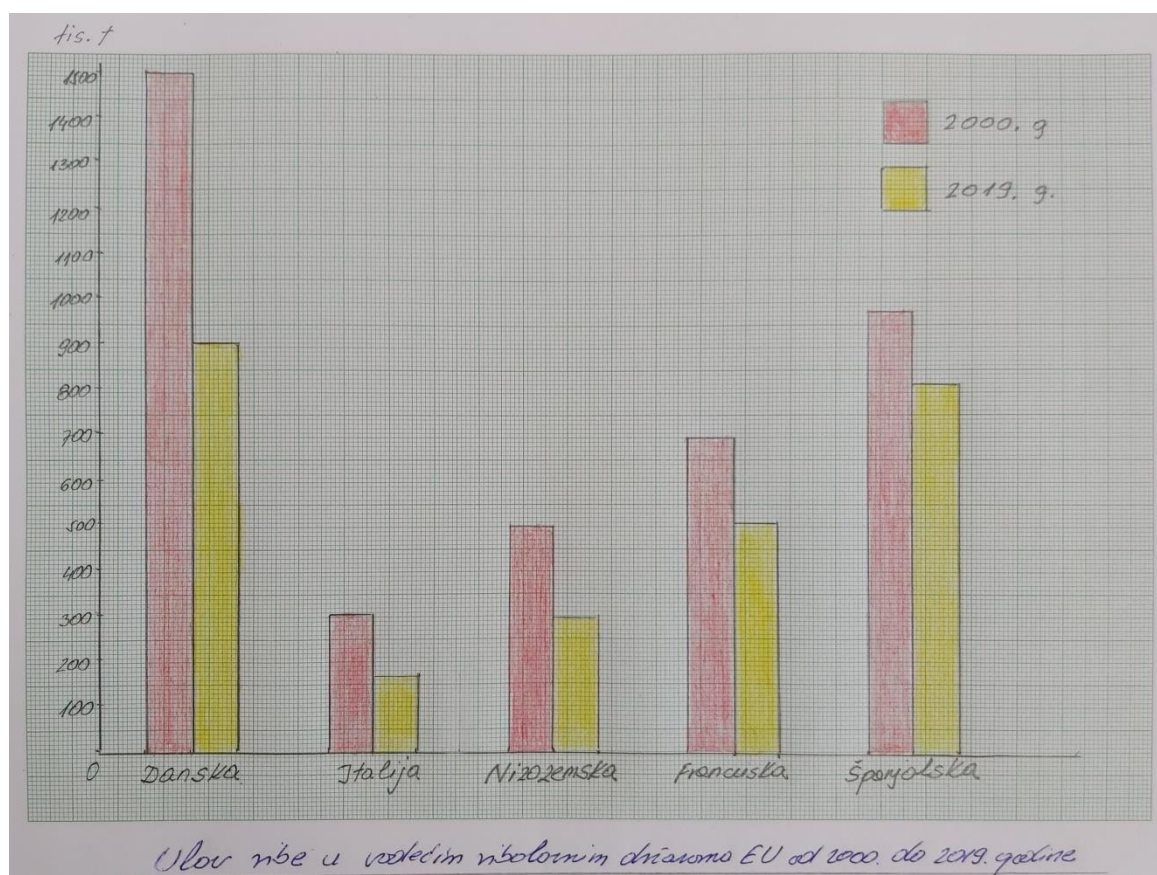 tis. t
1500
1400
1300
1200
1100
1000
900
800
700
600
500
400
300
200
100
0
2000. g
2019. g.
Danska Italija Nizozemska Francuska Španjolska
Ulov ribe u vodećim ribolovnim državama EU od 2000. do 2019. godine